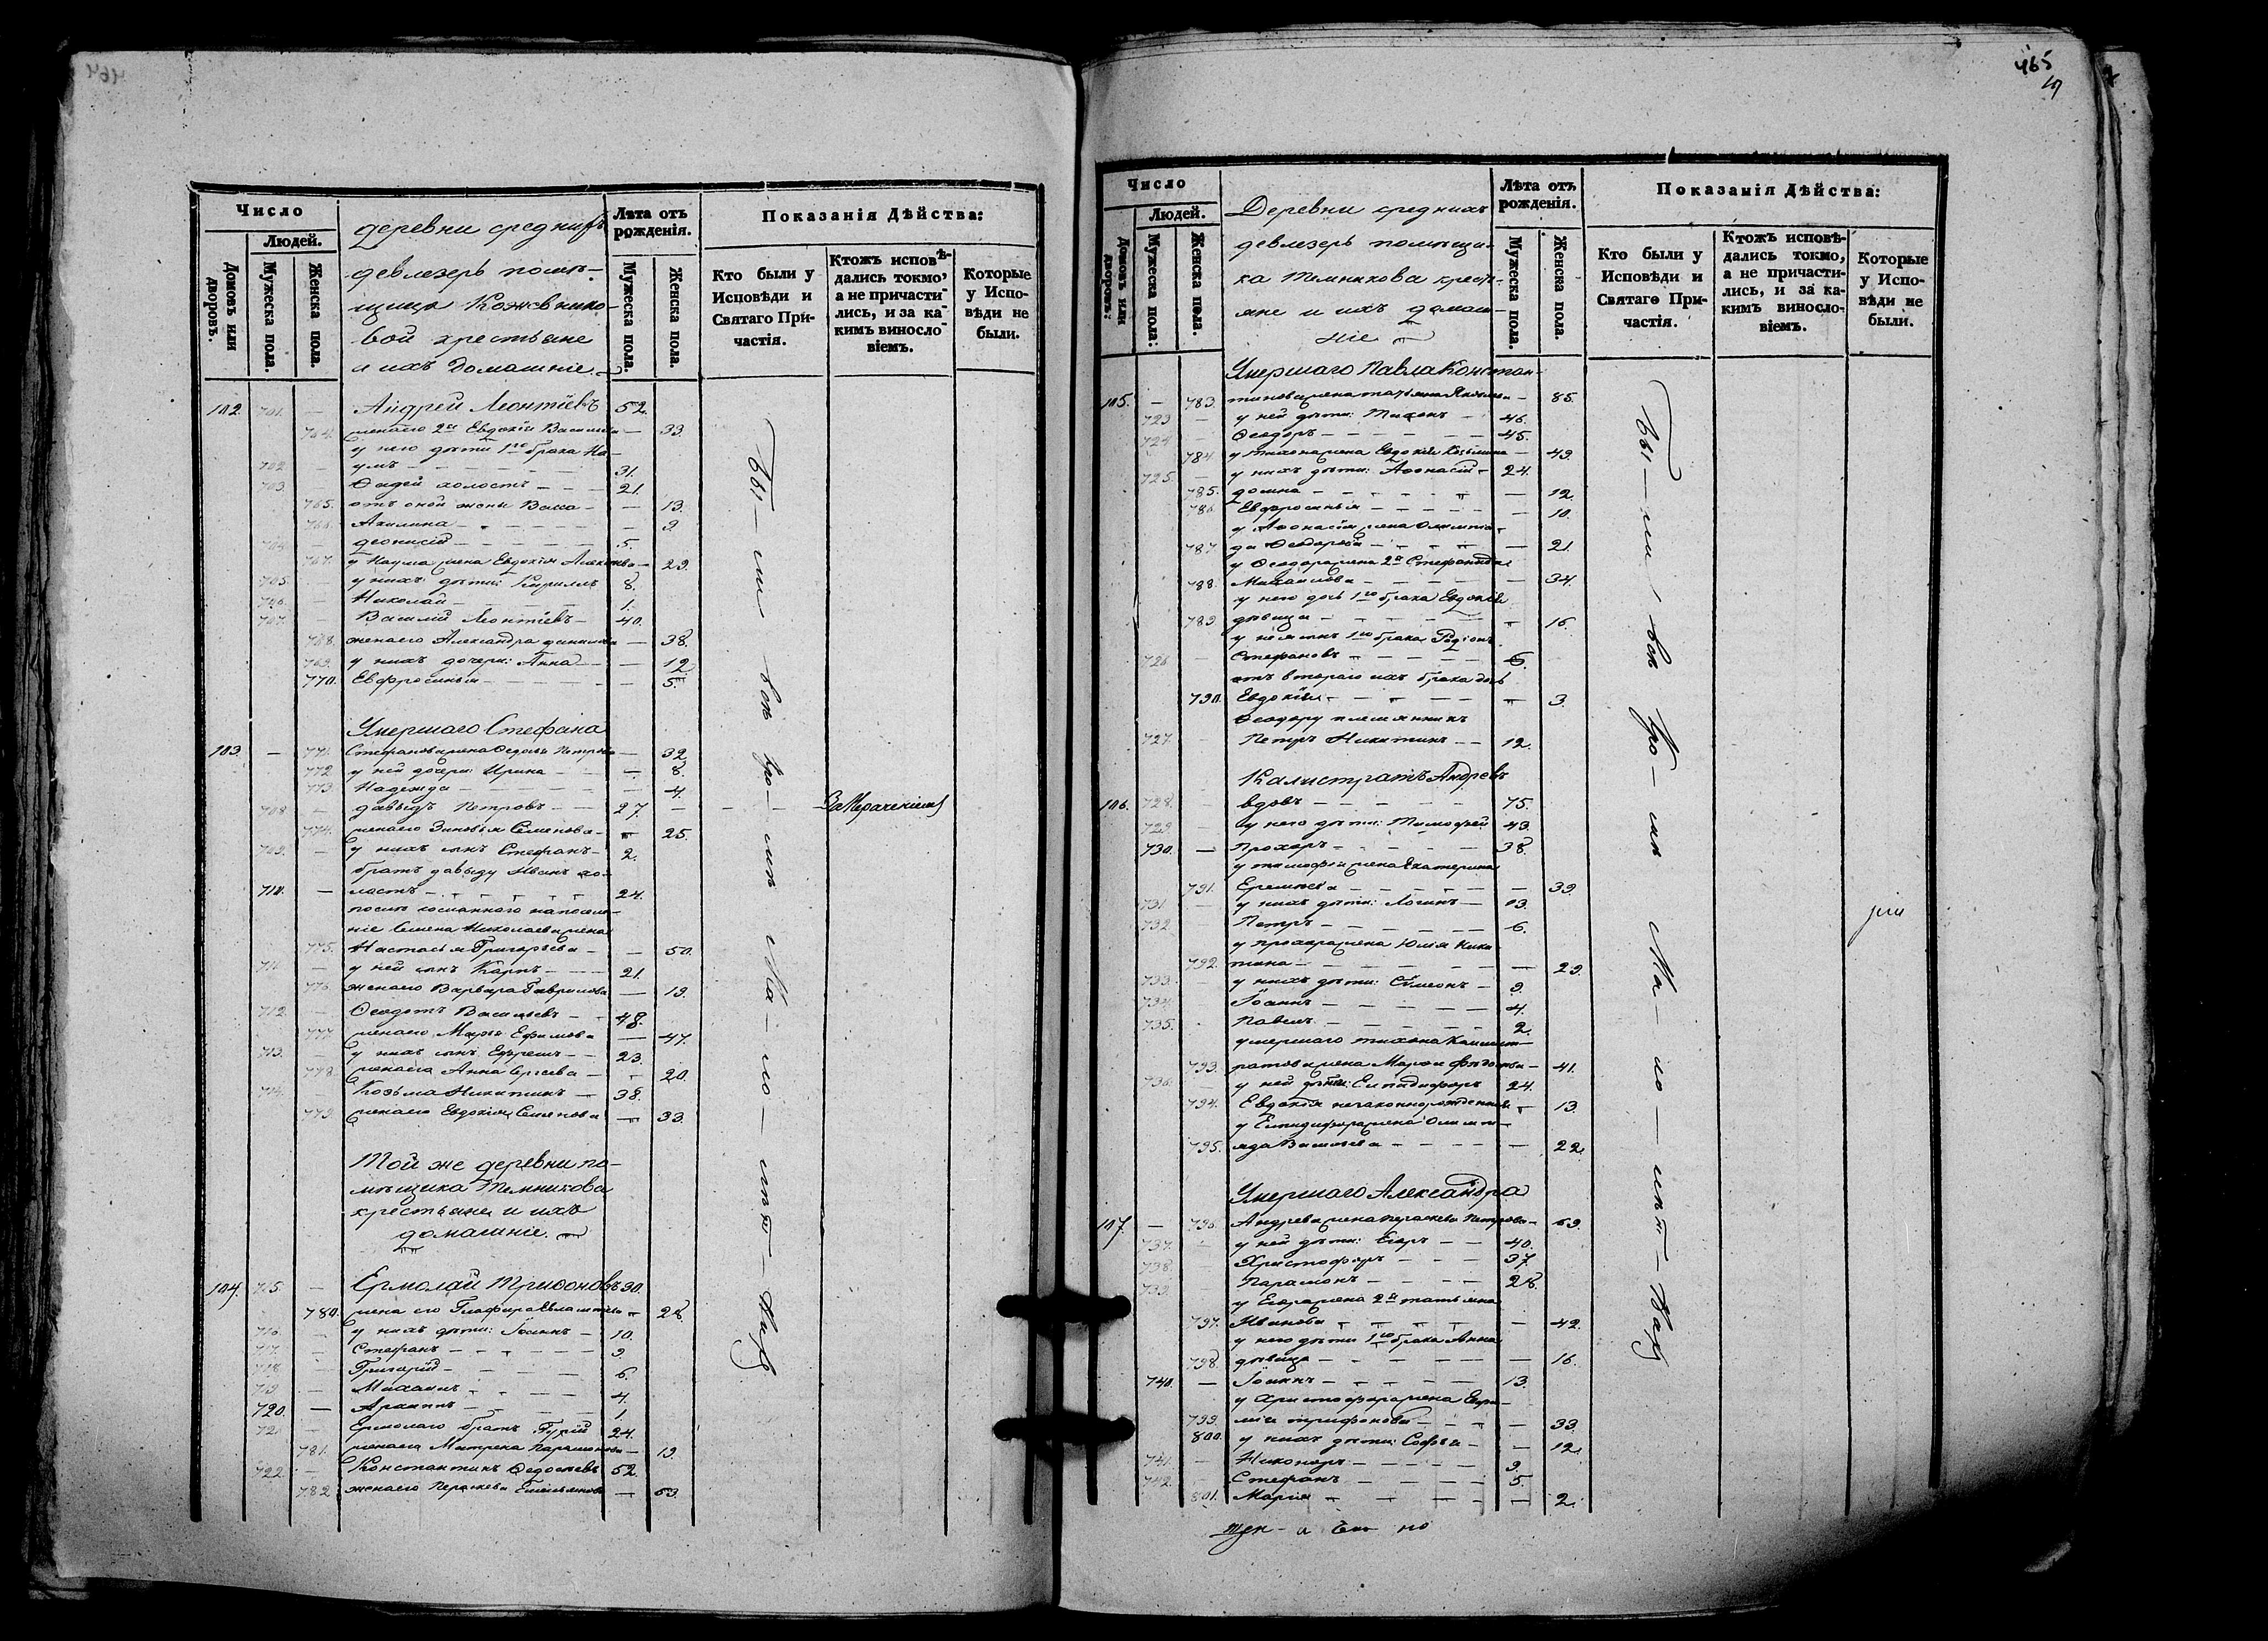 464
Число
Людей.
Домовъ или дворовъ.
Мужеска пола.
Женска пола.
деревни среднихъ
девлезерь помѣ-
щицы Кожевнико-
вой крестьяне
и ихъ домашніе.
Лѣта отъ рожденія.
Мужеска пола.
Женска пола.
Показанія Дѣйства:
Кто были у Исповѣди и Святаго Причастія.
Ктожъ исповѣ-
дались токмо,
а не причасти-
лись, и за ка-
кимъ винносло-
віемъ.
Которые
у Испо-
вѣди не
были.
102. 701. — Андрей Леонтіевъ 52.
764. жена его 2я Евдокія Васильева — 33.
у него дѣти 1го брака На-
702. — умъ — 31.
703. Фадей холостъ — 21.
765. отъ сной жены Васса — 13.
766. Акилина — 9
704. Діонисій — 5.
767. у Наума жена Евдокія — 29.
705. — у нихъ дѣти: Кириллъ 8.
706. — Николай — 1.
707. Василій Леонтіевъ — 40.
768. жена его Александра Данилова — 38.
769. у нихъ дочери: Анна — 12.
770. Евфросинья — 5.
Умершаго Стефана
103. — 771. Стефанова жена Федосья Петрова — 32
772 у ней дочери: Ирина — 8.
773. Надежда — 4.
708 — Давыдъ Петровъ — 27. — За Мрачніемъ
774. жена его Зиновья Семенова — 25.
709. — у нихъ сынъ Стефанъ — 2.
братъ Давыду Иванъ хо-
710. — лостъ — 24.
послѣ сосланнаго на поселе-
ніе Семена Николаева жена
775. Настасья Григорьева — 50.
711. — у ней сынъ Карпъ — 21.
776. жена его Варвара Гаврилова — 19.
712. — Феодотъ Васильевъ — 48.
777. жена его Марья Ефимова — 47.
713. — у нихъ сынъ Ефремъ — 23.
778. жена его Анна Сергеева — 20.
714. — Козьма Никитинъ — 38.
779. жена его Евдокія Семенова — 33.
Той же деревни по-
мѣщика Темникова
крестьяне и ихъ
домашніе.
104. 715. — Ермолай Трифоновъ 30.
780. жена его Глафира — 28.
716. — у нихъ дѣти: Іоаннъ — 10.
717. — Стефанъ — 9.
718. — Григорій — 6.
719 — Михаилъ — 4.
720. — Архипъ — 1.
721. — Ермолаю братъ Гурій 24.
781. жена его Матрена Парамонова — 19.
722. — Константинъ Федосеевъ 52.
782. жена его Параскева Емельянова — 53.
Бы — ли во вре — мя Ма — ло — лѣт — ныхъ
465
Число
Людей.
Домовъ или дворовъ:
Мужеска пола:
Женска пола.
Деревни среднихъ
девлезерь помѣщи-
ка Темникова кресть-
яне и ихъ домаш-
ніе
Лѣта отъ рожденія.
Мужеска пола.
Женска пола.
Показанія Дѣйства:
Кто были у
Исповѣди и
Святаго При-
частія.
Ктожъ исповѣ-
дались токмо,
а не причасти-
лись, и за ка-
кимъ виносло-
віемъ.
Которые
у Испо-
вѣди не
были.
Умершаго Павла Констан-
105. — 783. тинова жена Татьяна Яковлева — 85.
723 — у ней дѣти: Тихонъ — 46.
724 — Феодоръ — 45.
784 у Тихона жена Евдокія Козьмина — 49.
725. — у нихъ дѣти: Афонасій — 24.
785. Домна — 12.
786. Евфросинья — 10.
у Афонасія жена Олимпіа-
787. да Феодорова — 21.
у Феодора жена 2я Стефанида
788. Михаилова — 34.
у него дочь 1го брака Евдокія
789 дѣвица — 16.
у ней сынъ 1го брака Родіонъ
726. — Стефановъ — 6.
отъ втораго ихъ брака дочь
790. Евдокія — 3.
Феодору племянникъ
727. Петръ Никитинъ — 12.
Калистратъ Андреевъ
106. 728. — вдовъ — 75.
729. — у него дѣти: Тимофей 43.
730. — Прохоръ — 38.
у Тимофея жена Екатерина
791. Еремѣева — 39.
731 — у нихъ дѣти: Логинъ — 13.
732. Петръ — 6.
у Прохора жена Юлія Ники-
792. тина — 29.
733. — у нихъ дѣти: Сѵмеонъ — 9.
734. Іоаннъ — 4.
735. Павелъ — 2.
умершаго Тихона Калист-
793. ратова жена Марфа — 41.
736. у ней дѣти: Елпидифоръ 24.
794. Евдокія незаконнорожденная — 13.
у Елпидифора жена Олимпі-
795. яда Васильева — 22.
Умершаго Александра
107. — 796. Андреева жена Параскева Петрова — 69.
737. — у ней дѣти: Егоръ — 40.
738 — Христофоръ — 37.
739. Парамонъ — 28.
у Егора жена 2я Татьяна
797. Иванова — 42.
у него дѣти 1го брака Анна
798. дѣвица — 16.
740. — Іоаннъ — 13.
у Христофора жена Евфи-
799. мія Трифонова — 33.
800. у нихъ дѣти: Софья — 12.
741. — Никоноръ — 9.
742. — Стефанъ — 5.
801. Марія — 2.
Бы — ли во вре — мя Ма — ло — лѣт — ныхъ